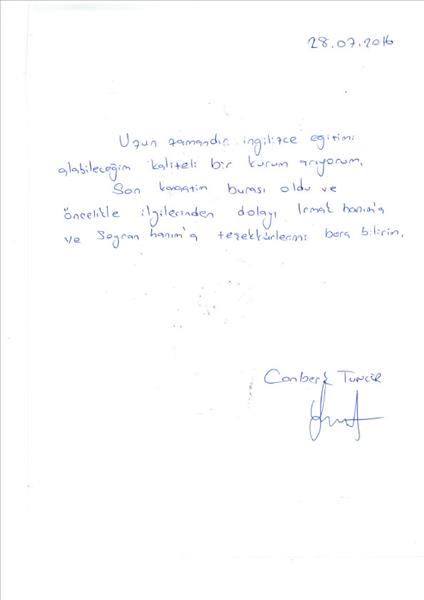 28.07.2016
Uzun zamandır ingilizce eğitimi
alabileceğim kaliteli bir kurum arıyorum.
Son kanaatim burası oldu ve
öncelikle ilgilerinden dolayı Irmak hanım'a
ve Seyran hanım'a teşekkürlerimi borç bilirim.
Canberk TUNCER